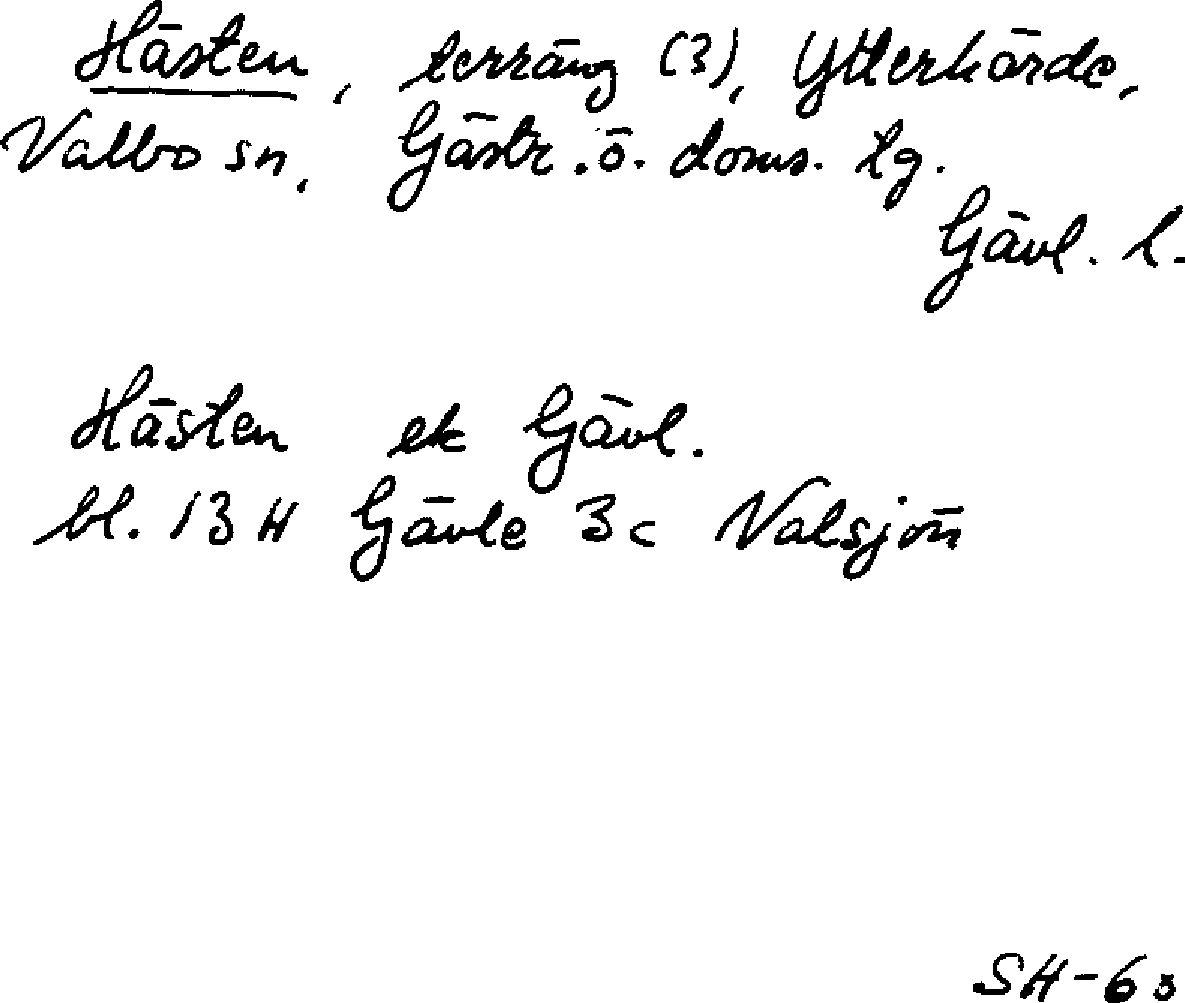 Hästen, terräng (3), Ytterhärde,
Valbo sn, Gästr. ö. doms. tg.
Gävl. l.
Hästen ek Gävl.
bl. 13 H Gävle 3c Valsjön
SH-63